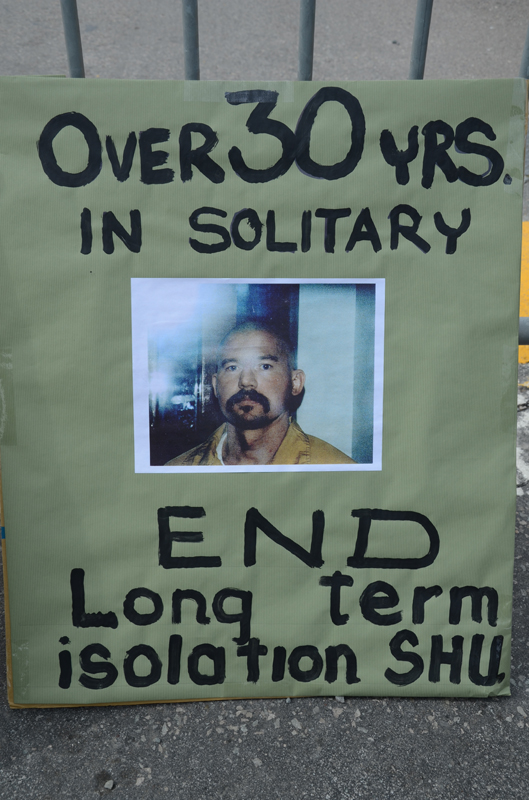 OVER 30 YRS.
IN SOLITARY
END
Long term
isolation SHU.